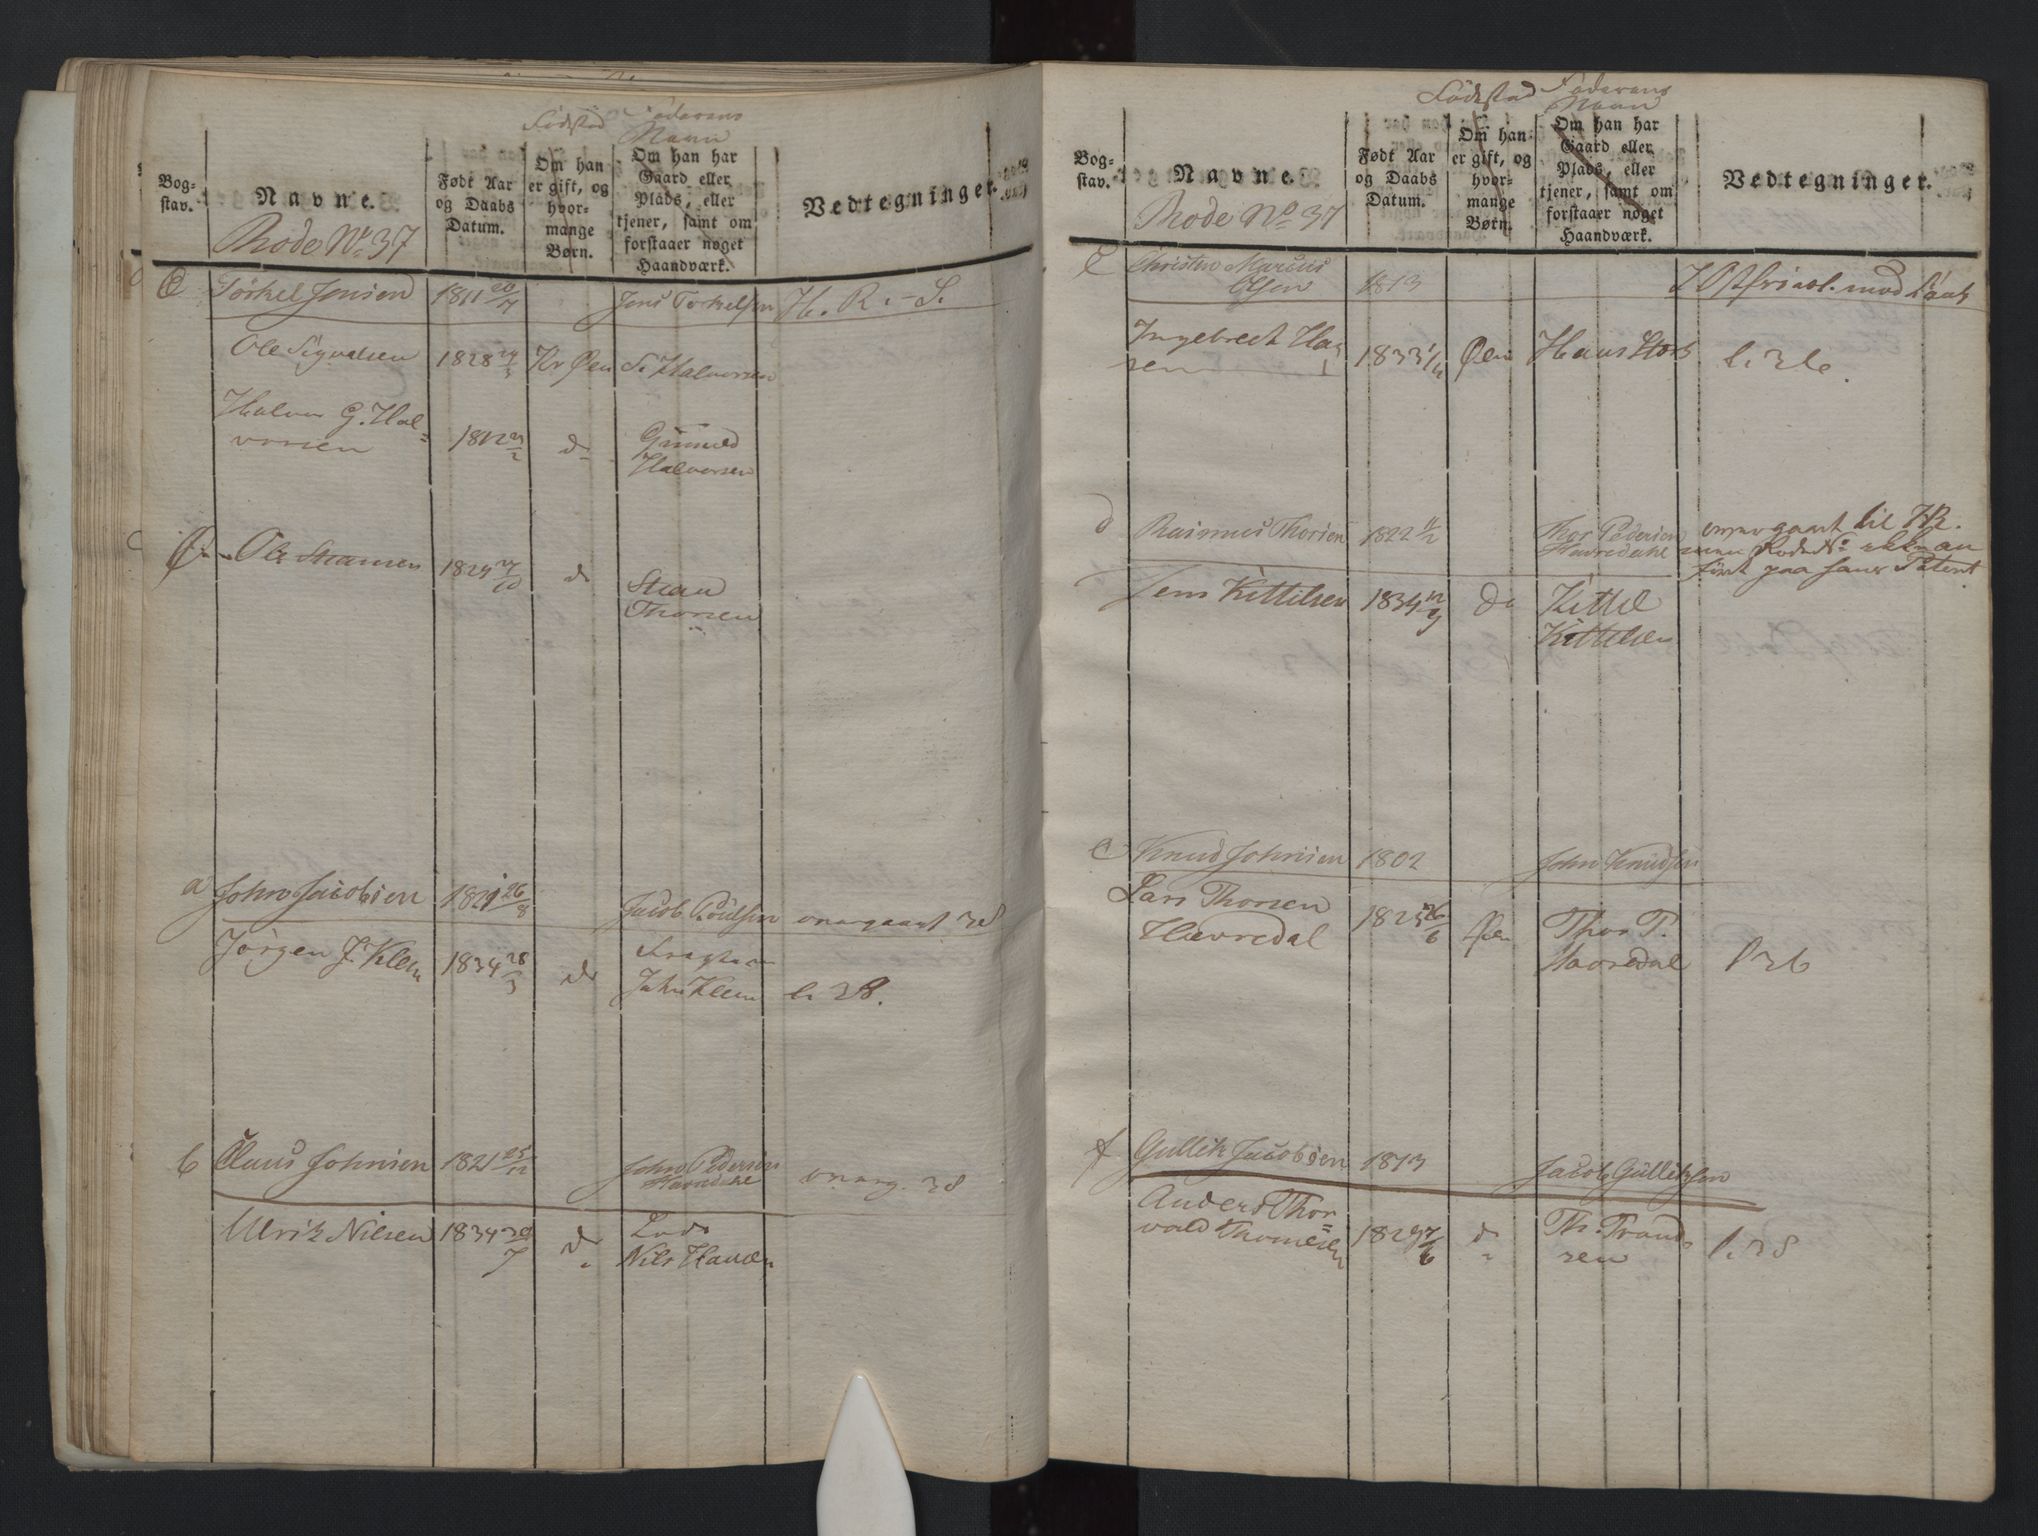 Fødested Faderens
Navn
Bog-
stav.
Navne.
Født Aar
og Daabs
Datum.
Om han
er gift, og
hvor-
mange
Børn.
Om han har
Gaard eller
Plads, eller
tjener, samt om
forstaaer noget
Haandværk.
Vedtegninger.
Rode No. 37
Torkel Jensen 1811 20/7 Jens Torkelsen H. R. - S.
Ole Sigvelsen 1828 24/3 Kr Øen S. Halvorsen
Halvor G. Hal=
vorsen 1812 23/2 do Gunuld
Halvorsen
Ole Steansen 1824 27/10 do Stean
Thorsen
a John Jacobsen 1821 26/8 Jacob Poulsen overgaaet 38
Jørgen J. Klem 1834 28/3 do
John Klem l. 38.
b Claus Johnsen 1821 25/12 John Pedersen
Havredahl overg. 38
Ulrik Nilsen 1834 30/7 do Lods
Nils Hansen
Fødested Faderens
Navn
Bog-
stav.
Navne.
Født Aar
og Daabs
Datum.
Om han
er gift, og
hvor-
mange
Børn.
Om han har
Gaard eller
Plads, eller
tjener, samt om
forstaaer noget
Haandværk.
Vedtegninger.
Rode No 37
c Christen Marcus
Olsen 1813
Ingebrect Han
sen 1833 1/11 Øen Hans l. 36.
d Rasmus Thorsen 1822 11/2 Thor Pedersen
Havredahl overgaaet til HR.
men Rode No ikke an
ført paa hans Patent
Jens Kittilsen 1834 12/9 do Kittel
Kittelsen
e Knud Johnsen 1802 John Knudsen
Lars Thorsen
Havredal 1825 26/6 Øen Thor P.
Havredal l 36
f Gullik Jacobsen 1813 Jacob Gulliksen
Anders Thor
vald Thomesen 1829 7/6 do Th. Trond
sen l. 38